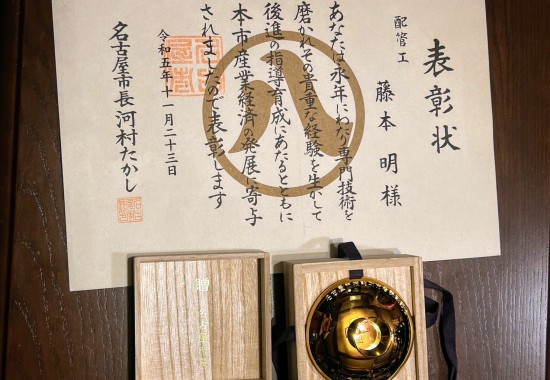 表彰状
配管工
藤本 明 様
あなたは永年にわたり専門技術を
磨かれその貴重な経験を生かして
後進の指導育成にあたるとともに
本市産業経済の発展に寄与
されましたので表彰します
令和五年十一月二十三日
名古屋市長 河村たかし
八
贈
名古屋市